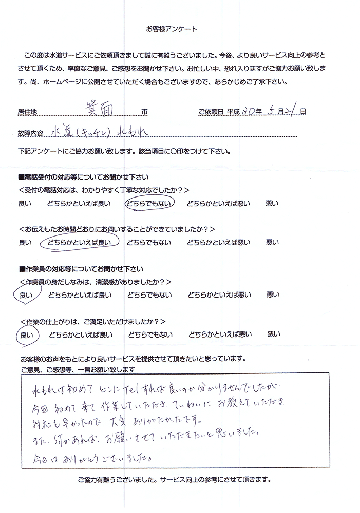 お客様アンケート
この度は水道サービスにご依頼頂きまして誠に有難うございました。今後、より良いサービス向上の参考と
させて頂くため、率直なご意見、ご感想をお聞かせ下さい。お忙しい中、恐れ入りますがご協力お願い致しま
す。尚、ホームページに公開させていただく場合もございますので、あらかじめご了承下さい。
居住地 箕面 市 ご依頼日 平成30年 5月21日
故障内容 水道(キッチン)水もれ
下記アンケートにご協力お願い致します。該当項目に○印をつけて下さい。
■電話受付の対応等についてお聞かせ下さい
<受付の電話対応は、わかりやすく丁寧な対応でしたか?>
良い どちらかといえば良い どちらでもない どちらかといえば悪い 悪い
<お伝えしたお時間どおりにお伺いすることができていましたか?>
良い どちらかといえば良い どちらでもない どちらかといえば悪い 悪い
■作業員の対応等についてお聞かせ下さい
<作業員の身だしなみは、清潔感がありましたか?>
良い どちらかといえば良い どちらでもない どちらかといえば悪い 悪い
<作業の仕上がりは、ご満足いただけましたか?>
良い どちらかといえば良い どちらでもない どちらかといえば悪い 悪い
お客様のお声をもとにより良いサービスを提供させて頂きたいと思っています。
ご意見、ご感想等、一言お願い致します
水もれは初めて どこにTELすれば良いのか分かりませんでしたが
今回 初めて 来て 作業していただき ていねいに お教えていただき
対応も早かったので 大変 ありがたかったです。
また、何かあれば、お願いさせていただきたいと思いました。
今回は ありがとうございました。
ご協力有難うございました。サービス向上の参考にさせて頂きます。